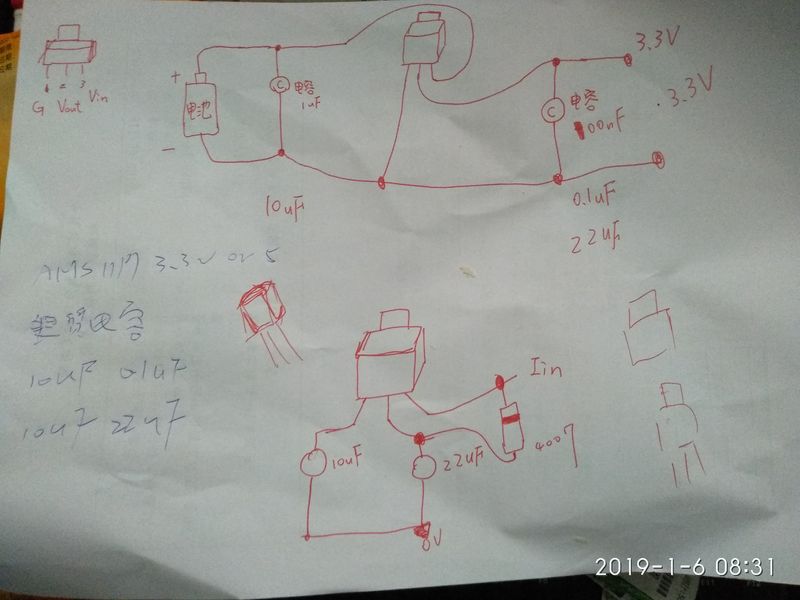 1 2 3
G Vout Vin
+
电池
-
C 电容
1uF
10uF
3.3V
C 电容
100nF
.3.3V
0.1uF
22uF
AMS1117 3.3V or 5
电容
10uF 01uF
10uF 22uF
Iin
10uF
22uF
4007
0V
2019-1-6 08:31